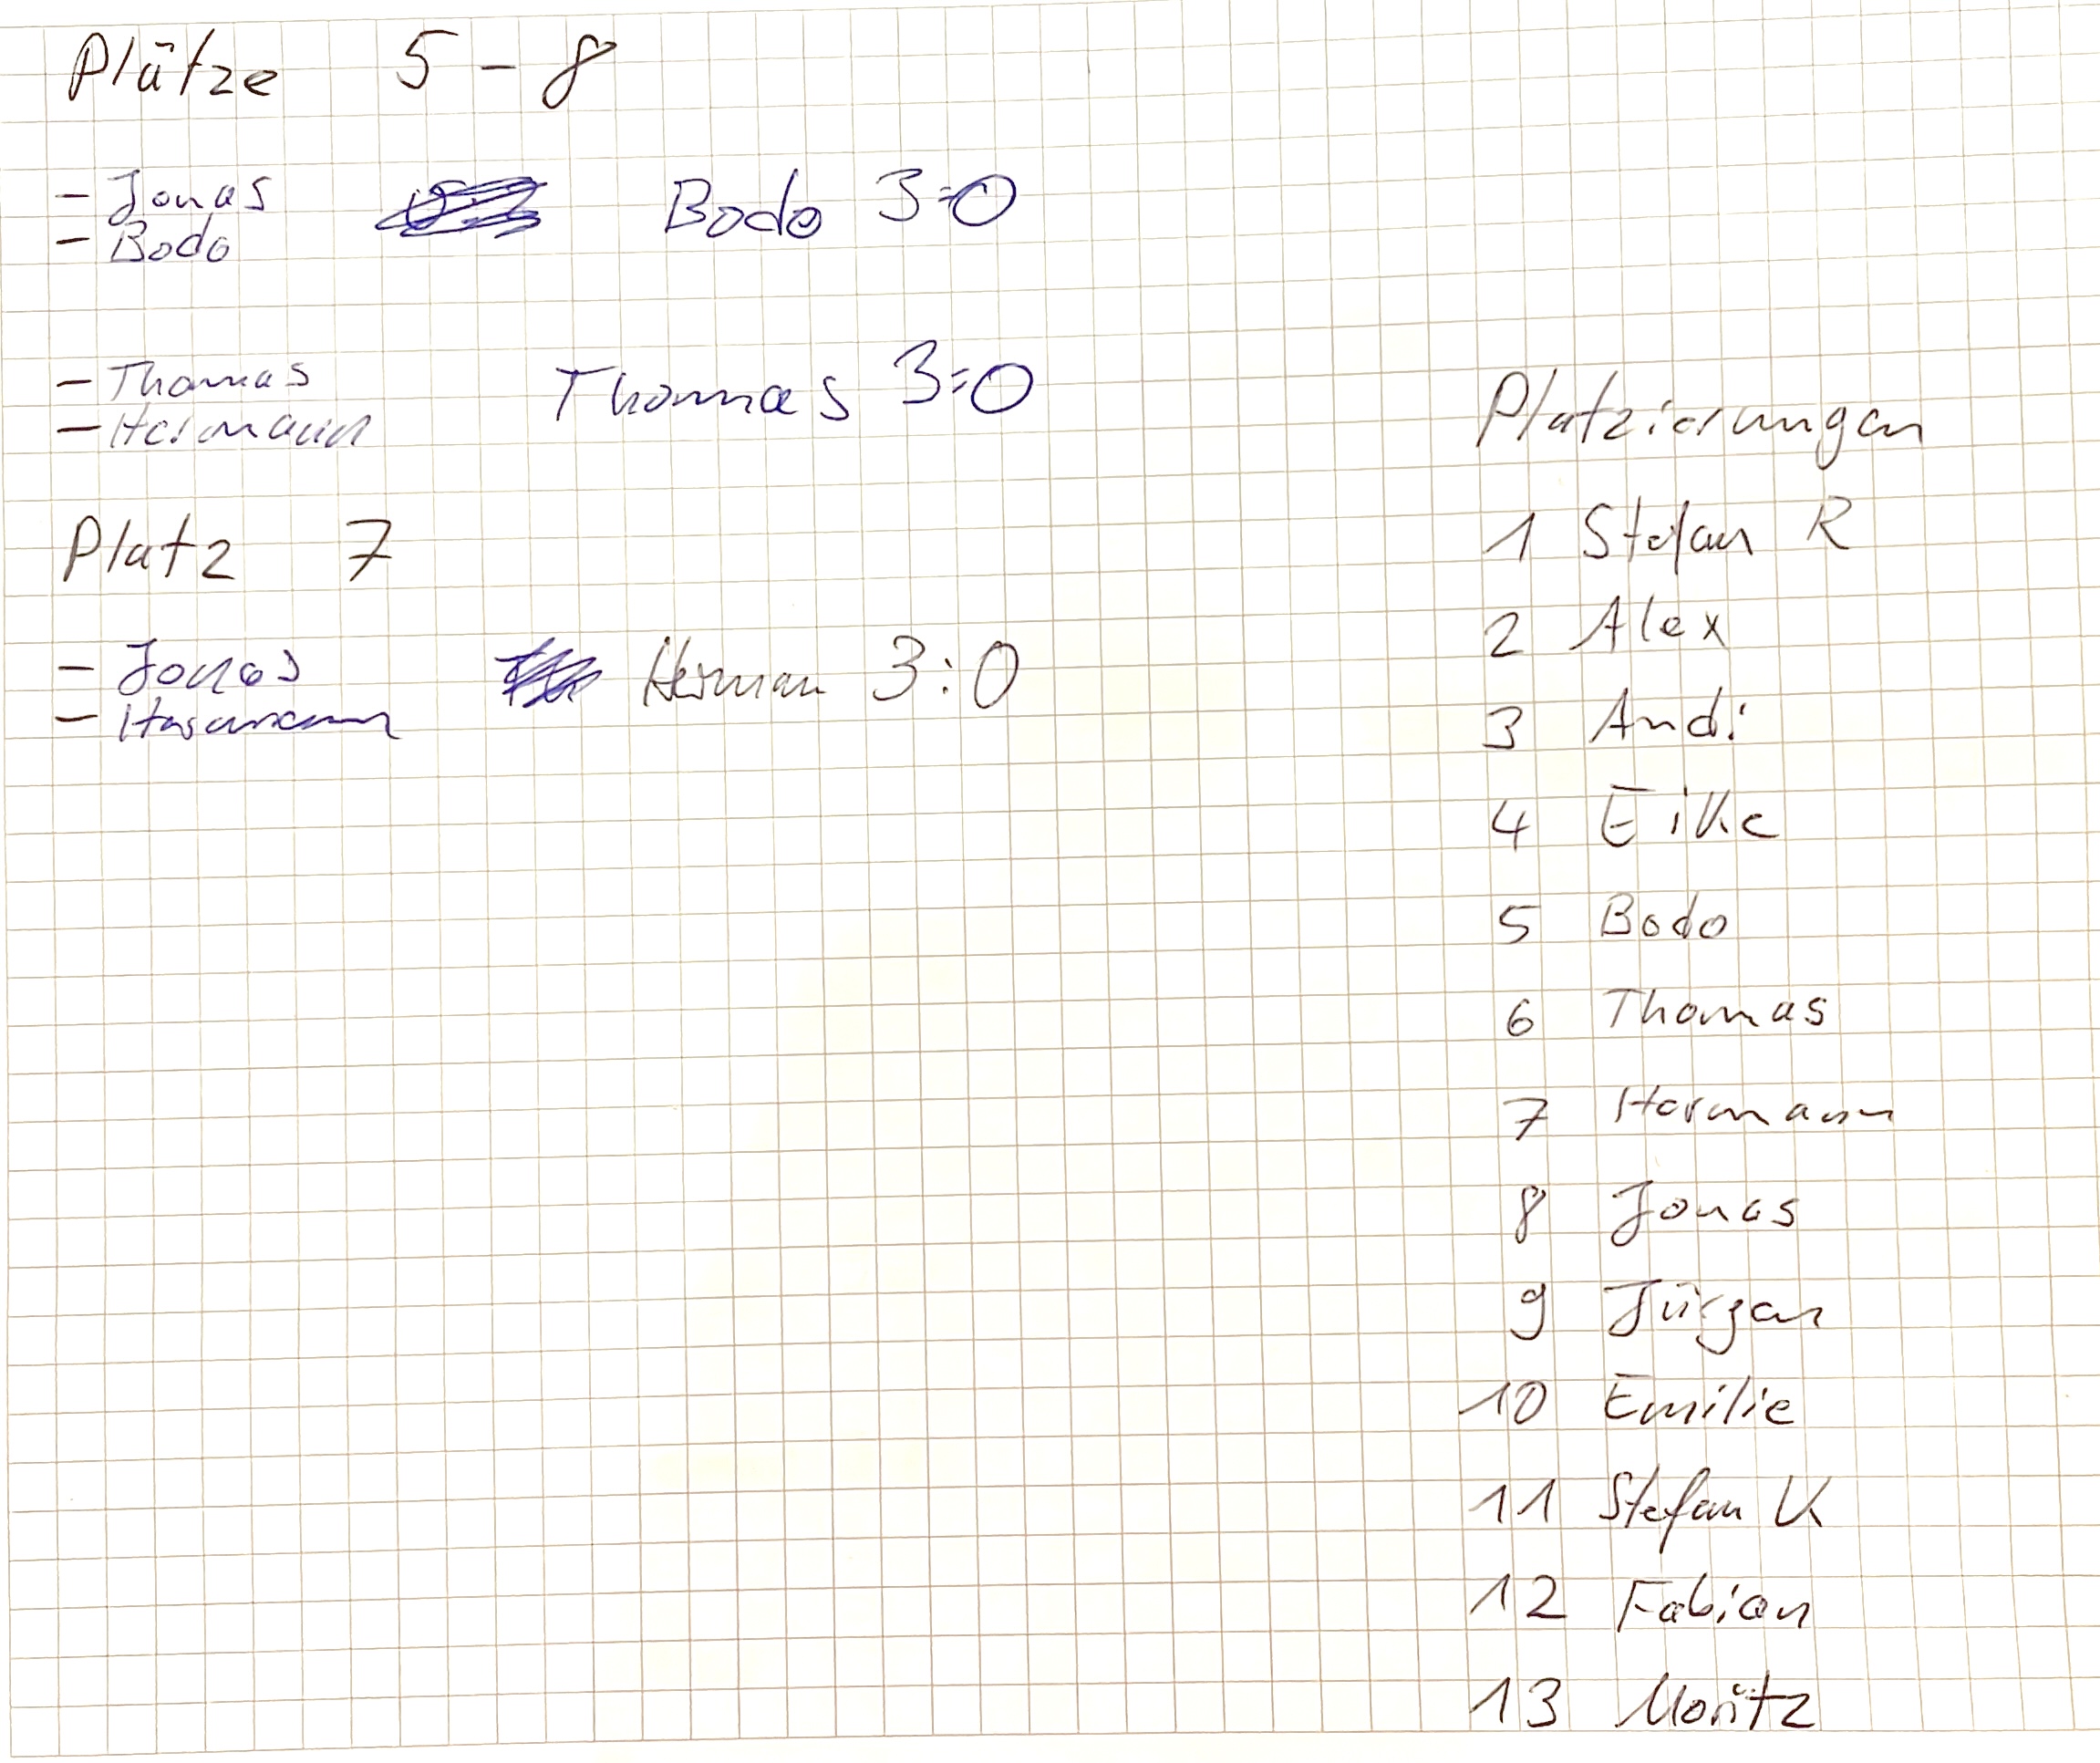 Plätze 5 - 8
- Jonas Bodo 3:0
- Bodo
- Thomas Thomas 3:0
- Hermann
Platz 7
- Jonas Herman 3:0
- Hermann
Platzierungen
1 Stefan R
2 Alex
3 Andi
4 Eike
5 Bodo
6 Thomas
7 Hermann
8 Jonas
9 Jürgen
10 Emilie
11 Stefan K
12 Fabian
13 Moritz